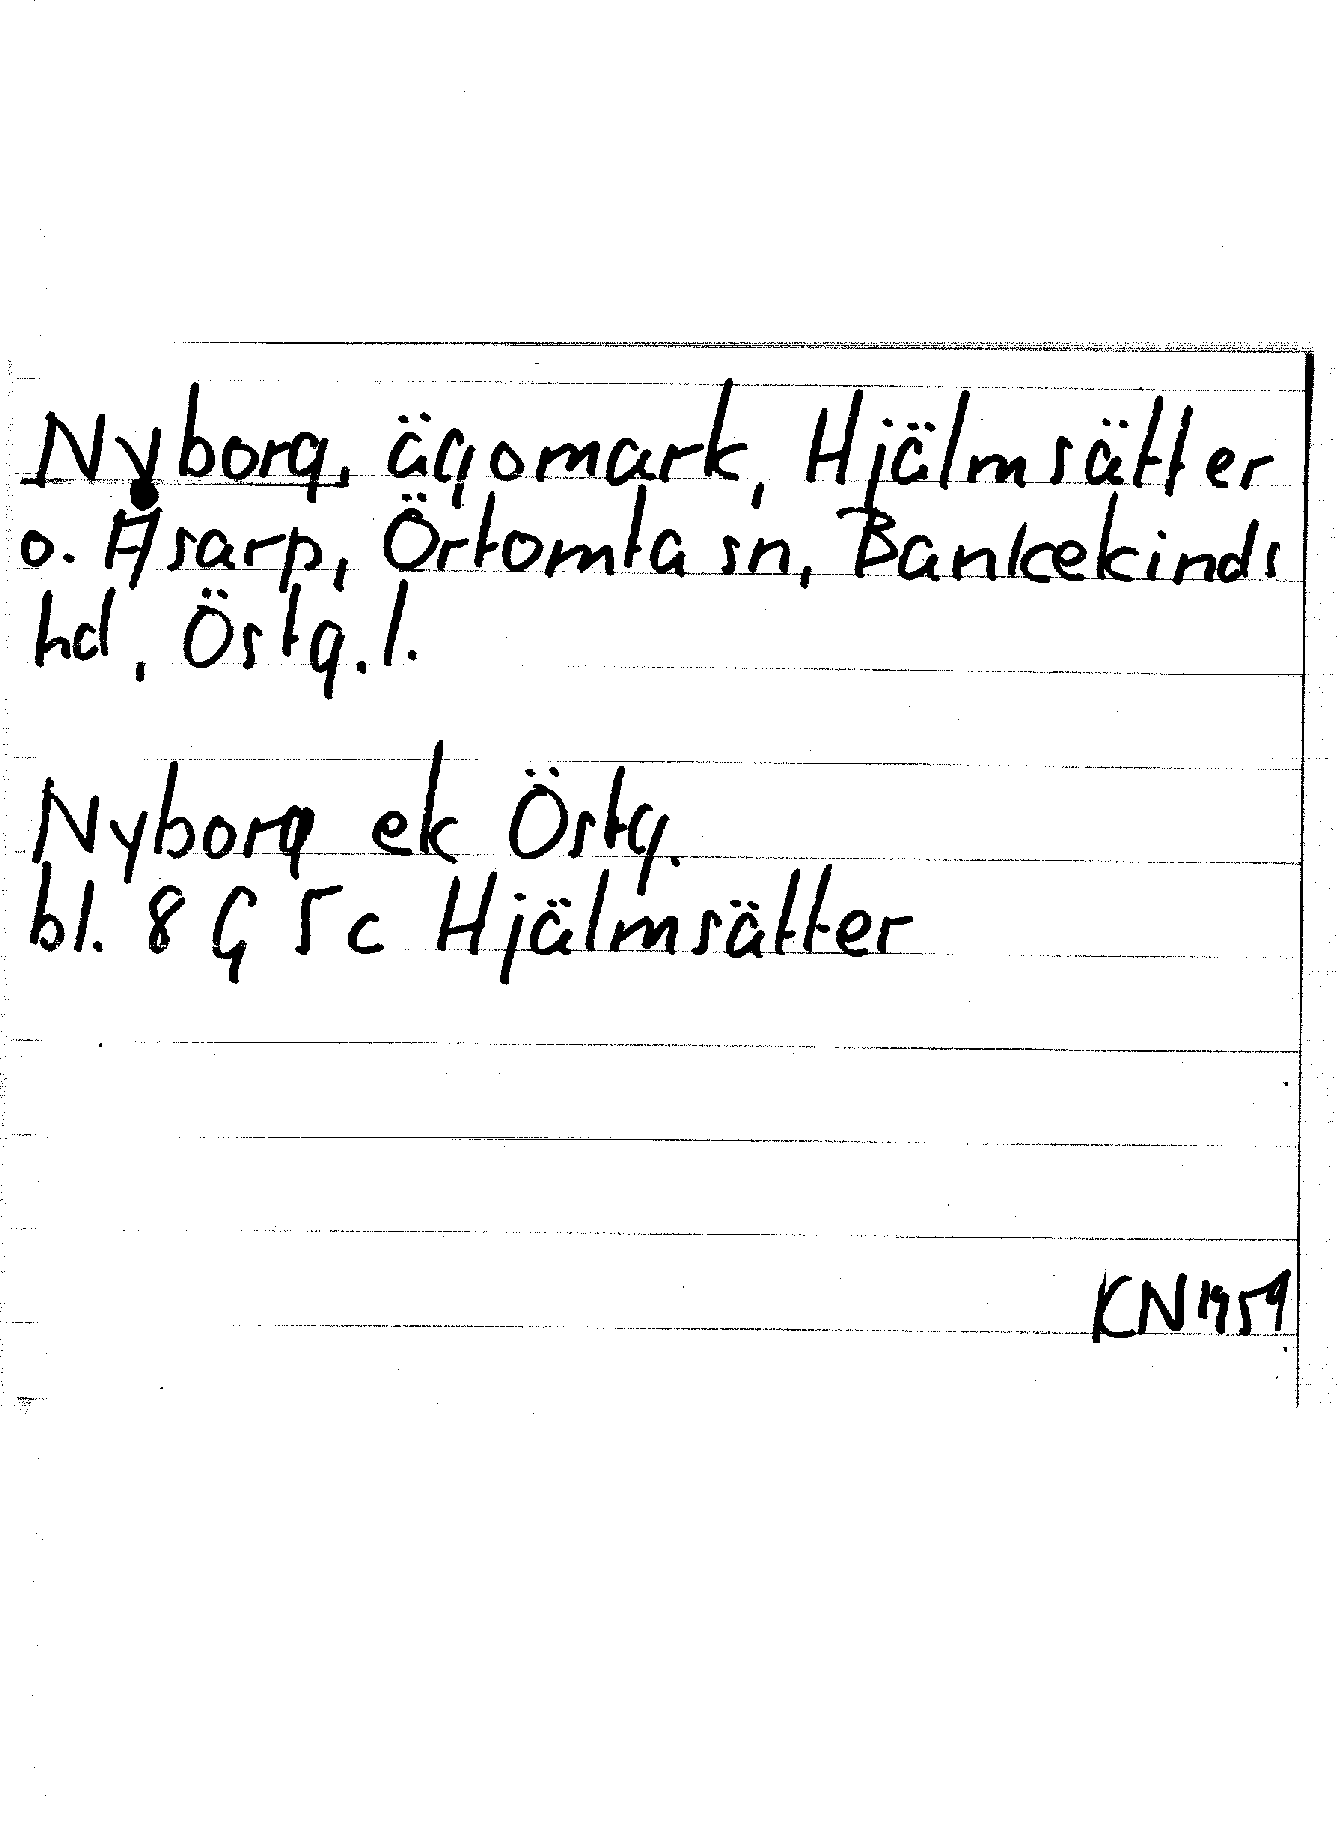 Nyborg, ägomark, Hjälmsätter
o. Åsarp, Örtomta sn, Bankekinds
hd, Östg.l.
Nyborg ek Östg.
bl. 8 G 5c Hjälmsätter
KN 1959